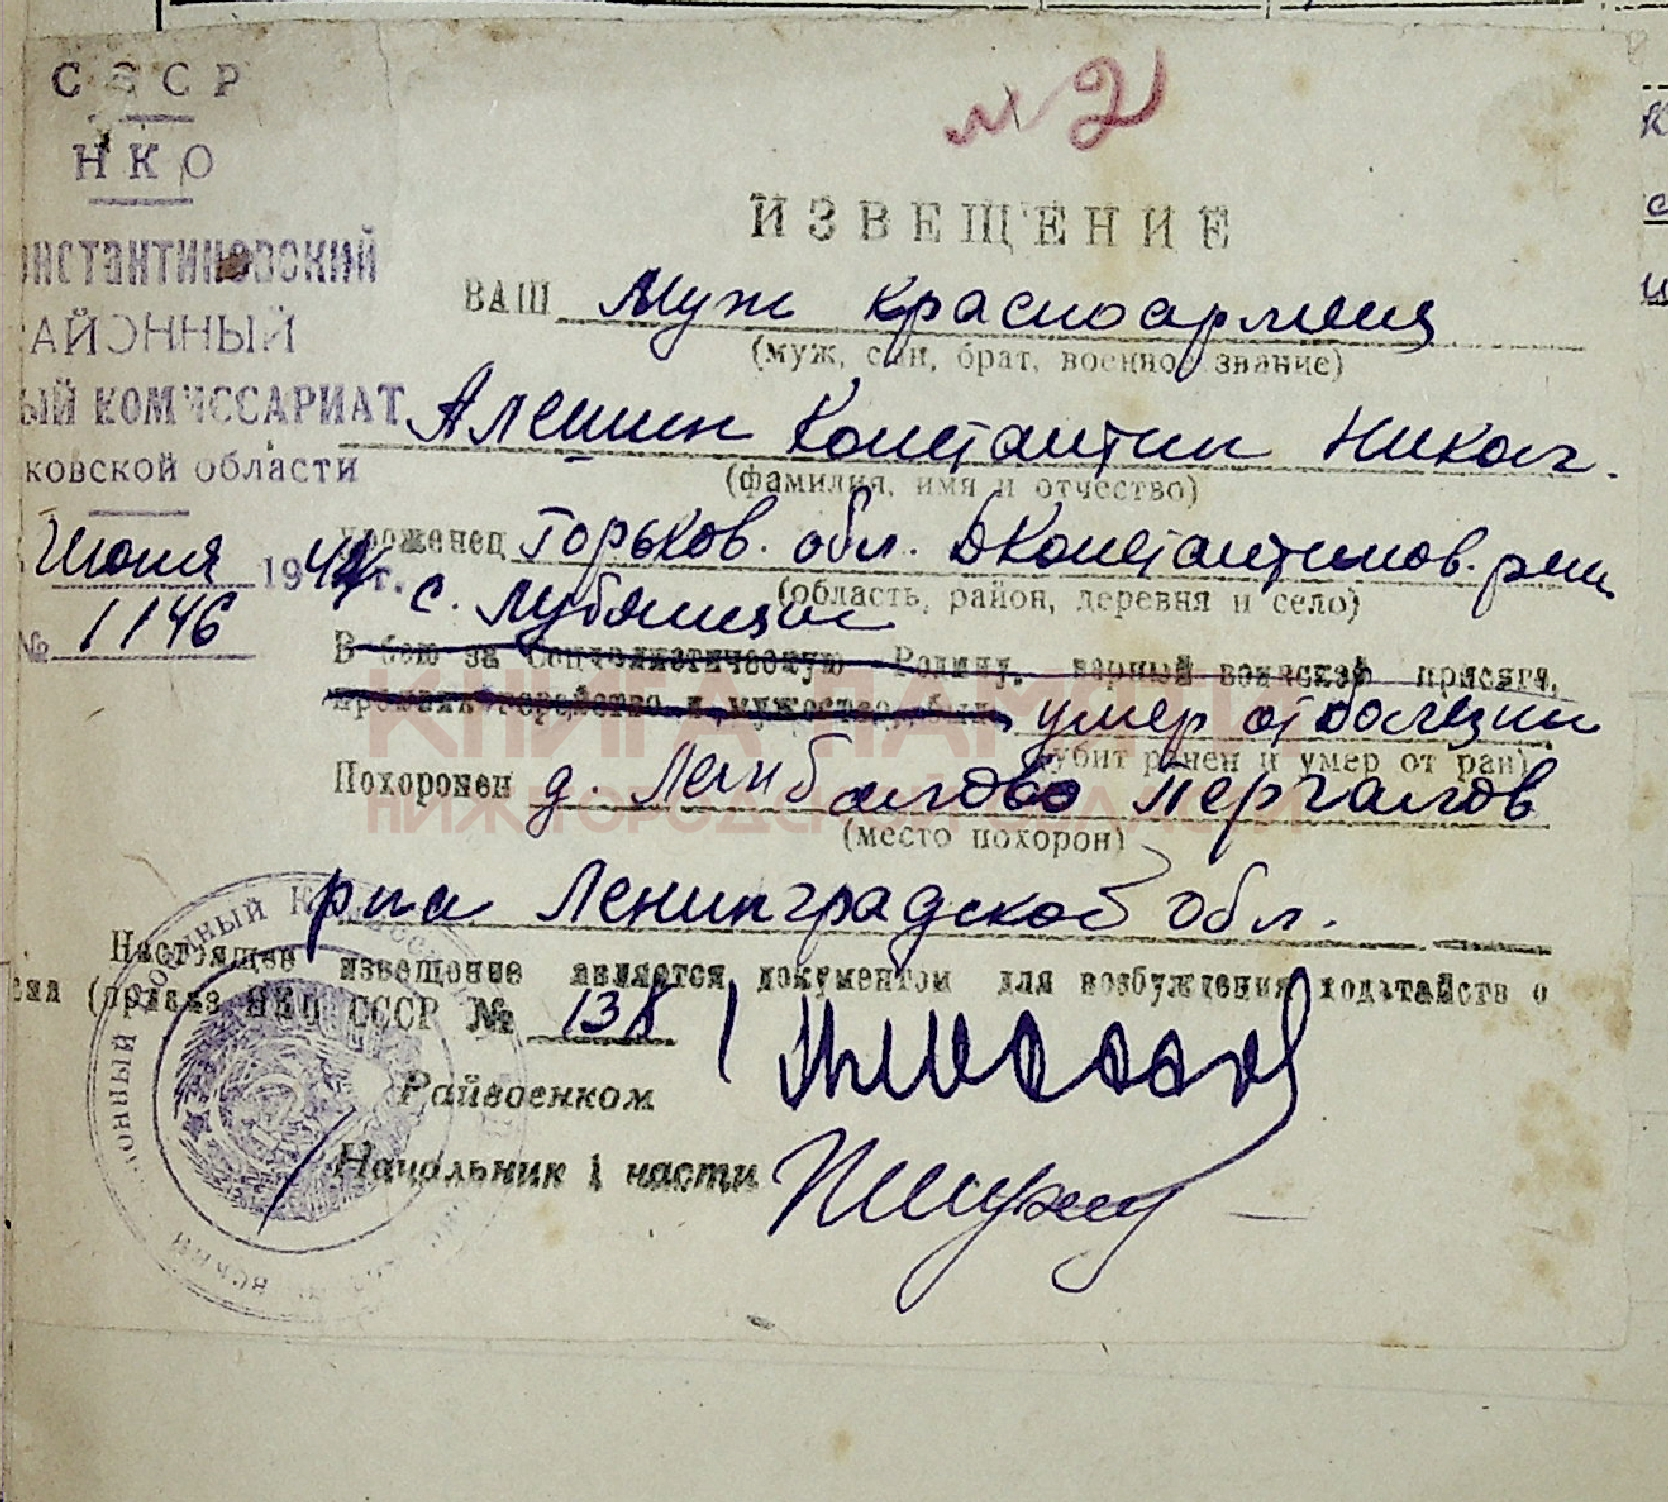 СССР
НКО
онстантиновский
РАЙОННЫЙ
ый КОМИССАРИАТ
ковской области
Июня 1944 г.
№ 1146
№2
ИЗВЕЩЕНИЕ
ВАШ Муж красноармеец
(муж, сын, брат, военное звание)
Алешин Константин Никол.
(фамилия, имя и отчество)
уроженец Горьков. обл. Дконстантинов. рна
(область, район, деревня и село)
с. Лубянцы
В бою за Социалистическую Родину, верный воинской присяге,
проявив геройство и мужество, был умер от болезни
(убит ранен и умер от ран)
КНИГА ПАМЯТИ
НИЖЕГОРОДСКОЙ ОБЛАСТИ
Похоронен д. Лембалово Парголов
(место похорон)
рна Ленинградской обл.
Настоящее извещение является документом для возбуждения ходатайств о
сии (приказ НКО СССР № 138
Райвоенком
Начальник 1 части